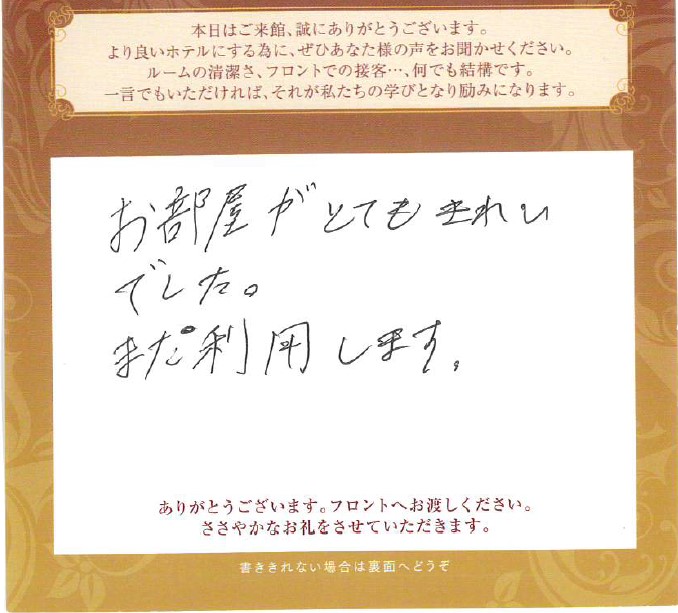 本日はご来館、誠にありがとうございます。
より良いホテルにする為に、ぜひあなた様の声をお聞かせください。
ルームの清潔さ、フロントでの接客…、何でも結構です。
一言でもいただければ、それが私たちの学びとなり励みになります。
お部屋がとてもきれい
でした。
また利用します。
ありがとうございます。フロントへお渡しください。
ささやかなお礼をさせていただきます。
書ききれない場合は裏面へどうぞ